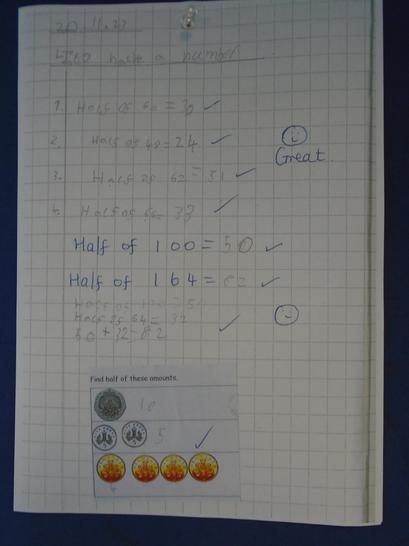 20.11.23
LI: to halve a number
1. Half of 60 = 30
2. Half of 48 = 24
3. Half of 62 = 31
4. Half of 66 = 33
Great
Half of 100 = 50
Half of 164 = 82
Half of 100 = 50
Half of 64 = 32
50 + 32 = 82
Find half of these amounts.
10
5